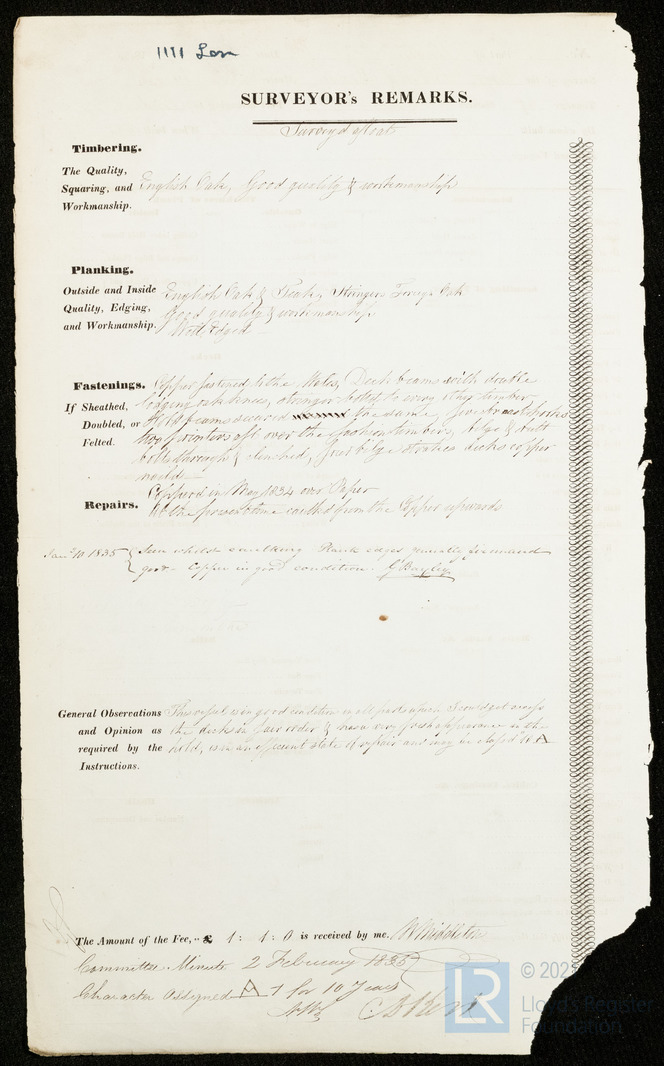 1111 Lon
SURVEYOR's REMARKS.
Surveyed afloat
Timbering.
The Quality,
Squaring, and
Workmanship.
English Oak, Good quality & workmanship
Planking.
Outside and Inside
Quality, Edging,
and Workmanship.
English Oak & Teak, Stringers Foreign Oak
Good quality & workmanship
Well Edged
Fastenings.
If Sheathed,
Doubled, or
Felted.
Copper fastened to the Wales, Deck beams with double
lodging oak knees, stringer bolted to every other timber
Hold beams secured the same, five breasthooks
two pointers aft over the fashion timbers, bilge & butt
bolts through & clenched, bilge strakes decks copper
nailed
Coppered in May 1834 over Copper
Repairs.
At the present time caulked from the Copper upwards
Jany 10 1835 Seen whilst caulking Plank edges generally firm and
good - Copper in good condition. G Bayley
General Observations
and Opinion as
required by the
Instructions.
This vessel is in good condition in all parts which I could get access
the decks in fair order & has a very fresh appearance in the
hold, is in an efficient state of repair and may be classed A
The Amount of the Fee, £ 1 : 1 : 0 is received by me. Middleton
Committee Minute 2 February 1835
Character assigned A 1 for 10 Years
LR
© 202
Lloyd's Register
Foundation